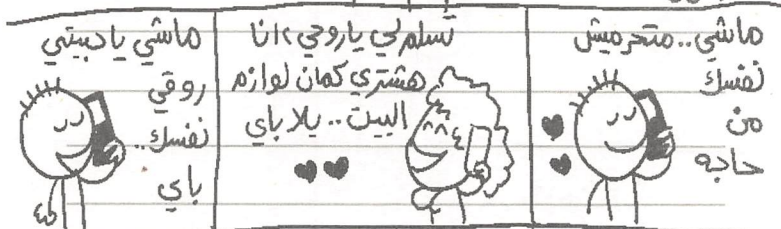 ماشي.. متحرميش
نفسك
من
حاجه
تسلم لي ياروحي، انا
هشتري كمان لوازم
البيت.. يلا باي
ماشي يا حبيبتي
روقي
نفسك..
باي